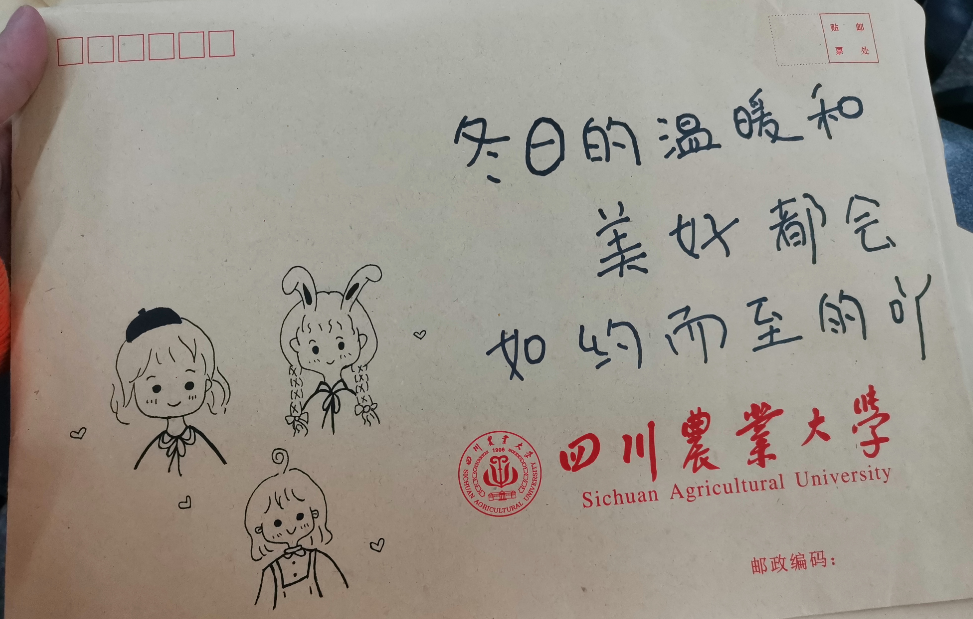 贴 邮
票 处
冬日的温暖和
美好都会
如约而至的吖
四川農業大學
SICHUAN AGRICULTURAL UNIVERSITY
1906
四川農業大學
Sichuan Agricultural University
邮政编码: